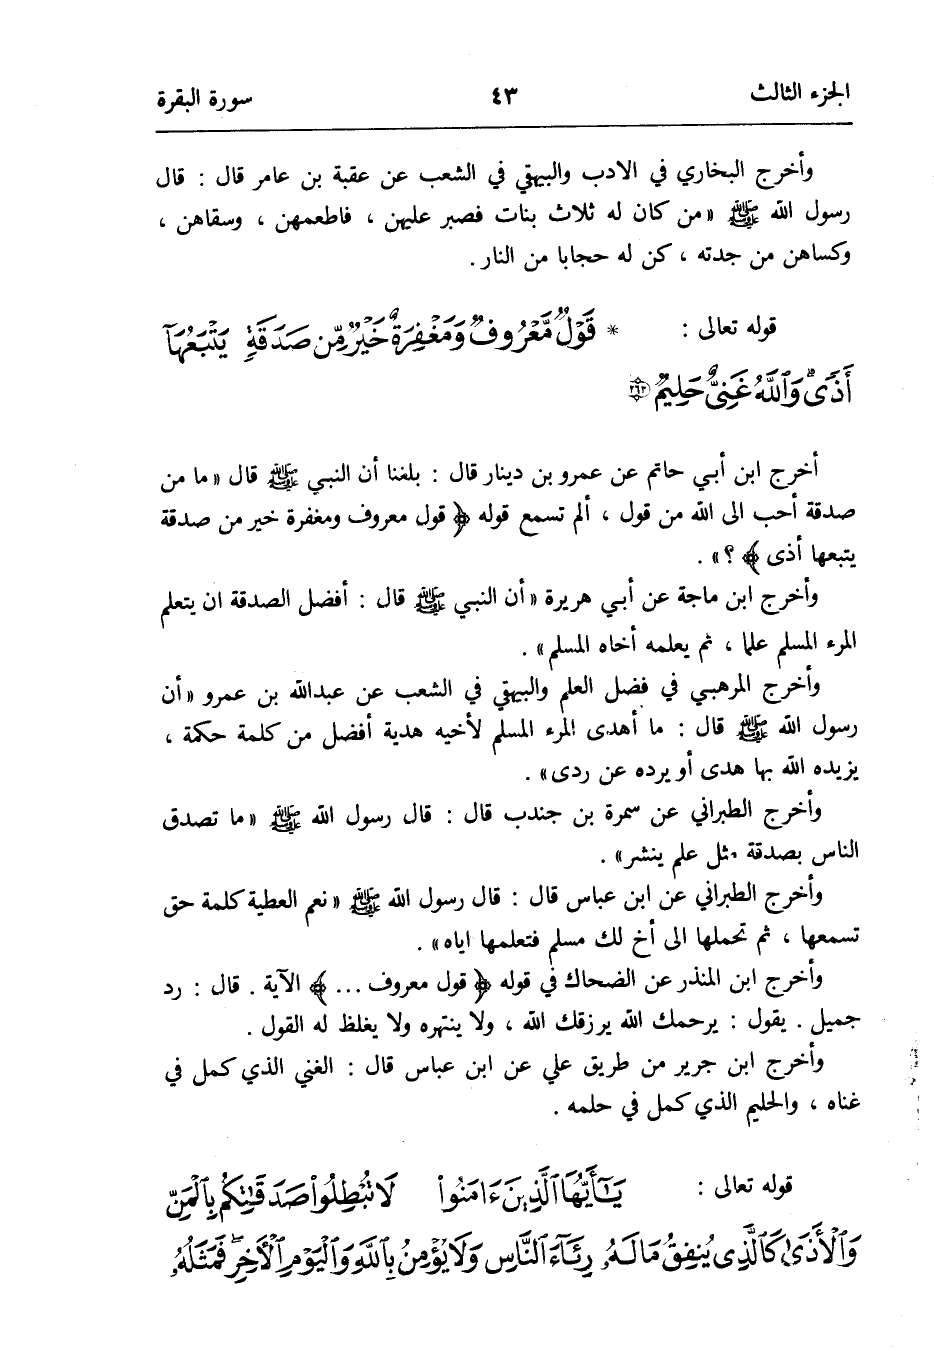 الجزء الثالث ٤٣ سورة البقرة
وأخرج البخاري في الادب والبيهقي في الشعب عن عقبة بن عامر قال : قال
رسول الله ﷺ «من كان له ثلاث بنات فصبر عليهن ، فاطعمهن ، وسقاهن ،
وكساهن من جدته ، كن له حجابا من النار .
قوله تعالى : * قَوْلٌ مَّعْرُوفٌ وَمَغْفِرَةٌ خَيْرٌ مِّن صَدَقَةٍ يَتْبَعُهَآ
أَذًى وَٱللَّهُ غَنِىٌّ حَلِيمٌ ﴿٢٦٣﴾
أخرج ابن أبي حاتم عن عمرو بن دينار قال : بلغنا أن النبي ﷺ قال «ما من
صدقة أحب الى الله من قول ، ألم تسمع قوله ﴿ قول معروف ومغفرة خير من صدقة
يتبعها أذى ﴾ ؟» .
وأخرج ابن ماجة عن أبي هريرة «أن النبي ﷺ قال : أفضل الصدقة ان يتعلم
المرء المسلم علما ، ثم يعلمه أخاه المسلم» .
وأخرج المرهبي في فضل العلم والبيهقي في الشعب عن عبدالله بن عمرو «أن
رسول الله ﷺ قال : ما أهدى المرء المسلم لأخيه هدية أفضل من كلمة حكمة ،
يزيده الله بها هدى أو يرده عن ردى» .
وأخرج الطبراني عن سمرة بن جندب قال : قال رسول الله ﷺ «ما تصدق
الناس بصدقة مثل علم ينشر» .
وأخرج الطبراني عن ابن عباس قال : قال رسول الله ﷺ «نعم العطية كلمة حق
تسمعها ، ثم تحملها الى أخ لك مسلم فتعلمها اياه» .
وأخرج ابن المنذر عن الضحاك في قوله ﴿ قول معروف ... ﴾ الآية . قال : رد
جميل . يقول : يرحمك الله يرزقك الله ، ولا ينتهره ولا يغلظ له القول .
وأخرج ابن جرير من طريق علي عن ابن عباس قال : الغني الذي كمل في
غناه ، والحليم الذي كمل في حلمه .
قوله تعالى : يَـٰٓأَيُّهَا ٱلَّذِينَ ءَامَنُوا۟ لَا تُبْطِلُوا۟ صَدَقَـٰتِكُم بِٱلْمَنِّ
وَٱلْأَذَىٰ كَٱلَّذِى يُنفِقُ مَالَهُۥ رِئَآءَ ٱلنَّاسِ وَلَا يُؤْمِنُ بِٱللَّهِ وَٱلْيَوْمِ ٱلْأَخِرِ ۖ فَمَثَلُهُۥ